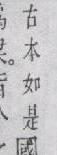 古本如是國